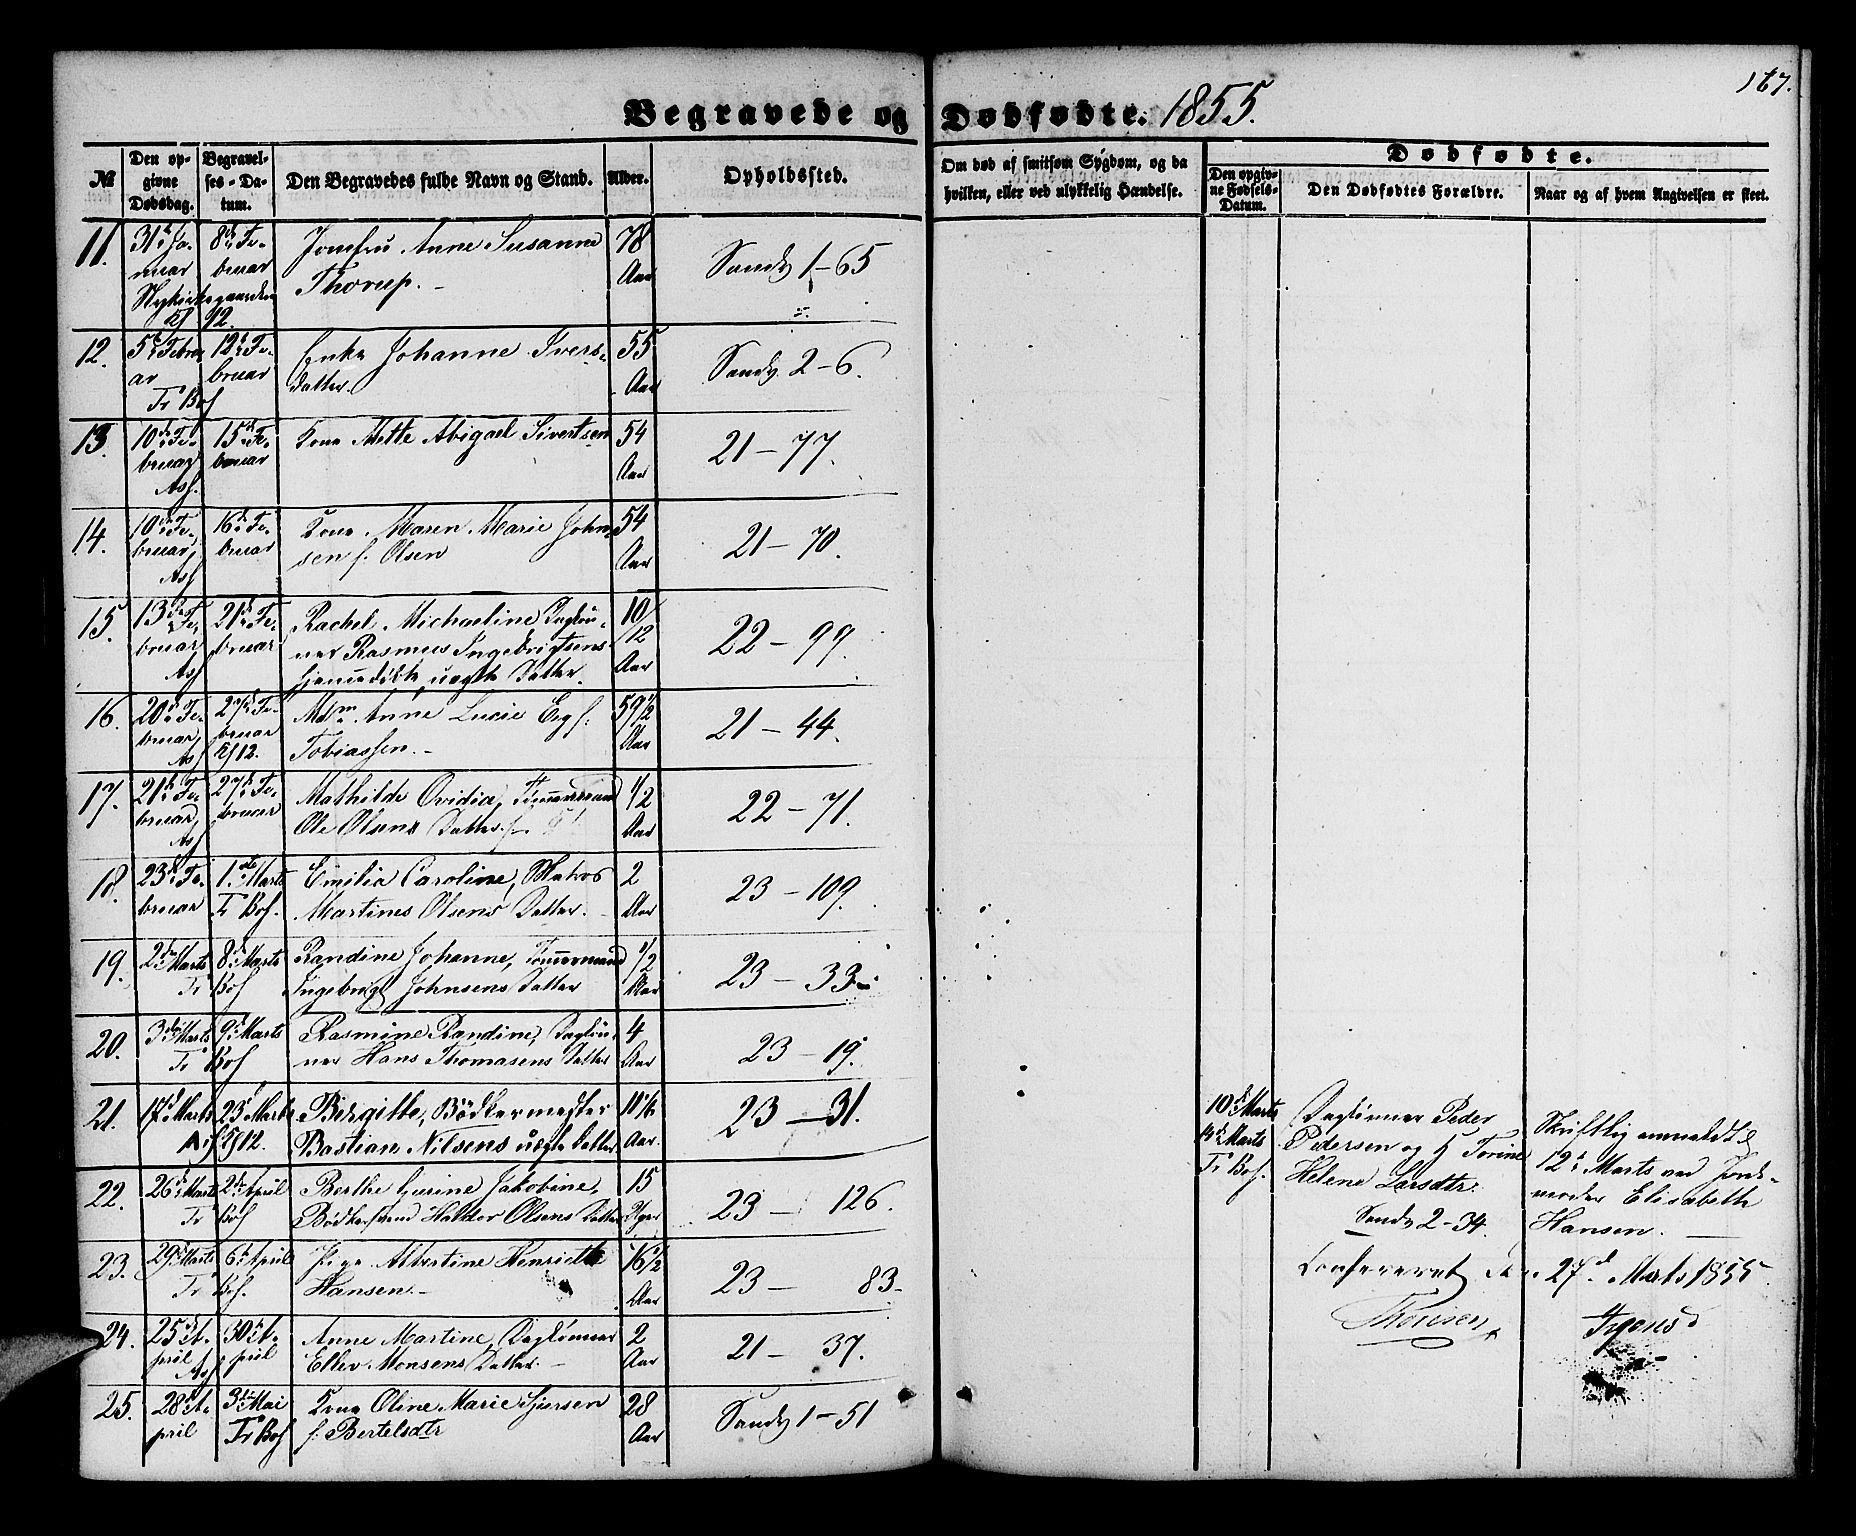 167.
Begravede og Dødfødte. 1855.
№
Den opgivne Dødsdag.
Begravelses-Datum.
Den Begravedes fulde Navn og Stand.
Alder.
Opholdssted.
Om død af smitsom Sygdom, og da
hvilken, eller ved ulykkelig Hændelse.
Dødfødte.
Den opgivne Fødsels-Datum.
Den Dødfødtes Forældre.
Naar og af hvem Angivelsen er skeet.
11. 31te Januar 8de Februar Jomfru Anne Susanne 78 Aar Sandv 1-65
Thorup.
12. 5te Februar 12te Februar Enke Johanne Ivers- 55 Aar Sandv. 2-6.
datter.
Tr Bof
13. 10de Februar 15de Februar Kone Mette Abigael Sivertsen 54 Aar 21-77.
Asf.
14. 10de Februar, 16de Februar Kone Maren Marie John- 54 Aar 21-70.
sen f. Olsen
Asf
15. 13de Februar 21de Februar Rachel Michaeline Dagløn- 10/12 Aar 22-99.
ner Rasmus Ingebrigtsens
uægte Datter.
Asf
16. 20de Februar, 27de Februar Mdm Anne Lucie Eeg f. 59½ Aar 21-44.
Tobiassen.
Asf
17. 21de Februar, 27de Februar Mathilde Ovidia, Tømmermand ½ Aar 22-71.
Ole Olsens Datter.
Asf
18. 23de Februar 1ste Marts Emilia Caroline, Matros 2 Aar 23-109.
Tr Bof. Martines Olsens Datter.
19. 2den Marts 8de Marts Randine Johanne, Tømmermand ½ Aar 23-33
Tr Bof Ingebrigt Johnsens Datter
20. 3die Marts 9de Marts Rasmine Randine, Dagløn- 4 Aar 23-19.
Tr Bof ner Hans Thomasens Datter
21. 17de Marts 23de Marts Birgitte, Bødkermester Aar. 23-31.
Bastian Nilsens uægte Datter.
22. 26de Marts 2den April Berthe Gurine Jakobine, 15 Uger 23-126.
Tr Bof Bødkersvend Halder Olsens Datter
23. 29de Marts 6te April Pige Albertine Henriette 16½ Aar 23-83.
Tr Bof. Hansen.
24. 25de April 30te April Anne Martine, Daglønner 2 Aar 21-37.
Asf Ellev Monsens Datter.
25. 28de April 3die Mai Kone Oline Marie Sjursen 28 Aar Sandv 1-51
Tr Bof f. Bertelsdtr
10de Marts
14de Marts
Tr Bof.
Daglønner Peder
Pedersen og H. Torine
Helene Larsdtr.
Sandv 2-34.
Skriftlig anmeldt d
12te Marts ved Jorde-
moder Elisabeth
Hansen.
Confereret den 27de Marts 1855
Thonsen